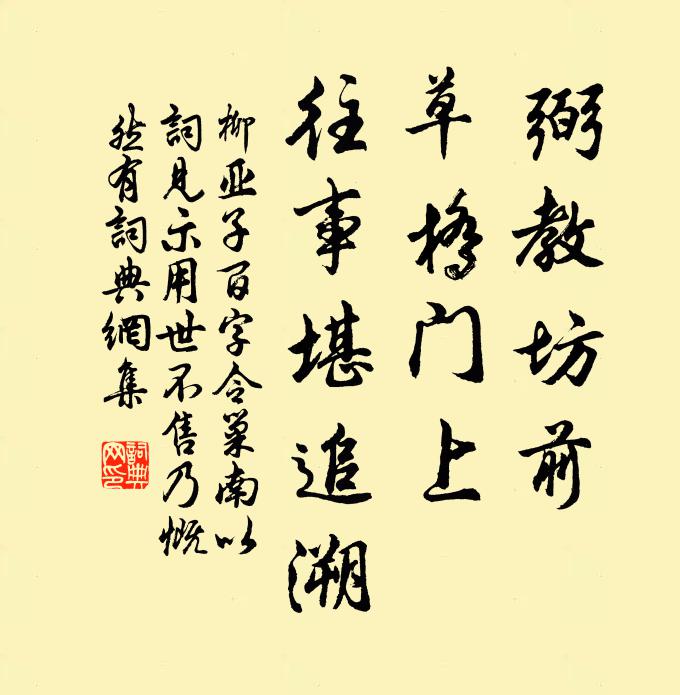 弼教坊前
草橋门上
往事堪追溯
柳亚子百字令巢南以
詞見示用世不售乃慨
然有詞典網集
詞典
网印